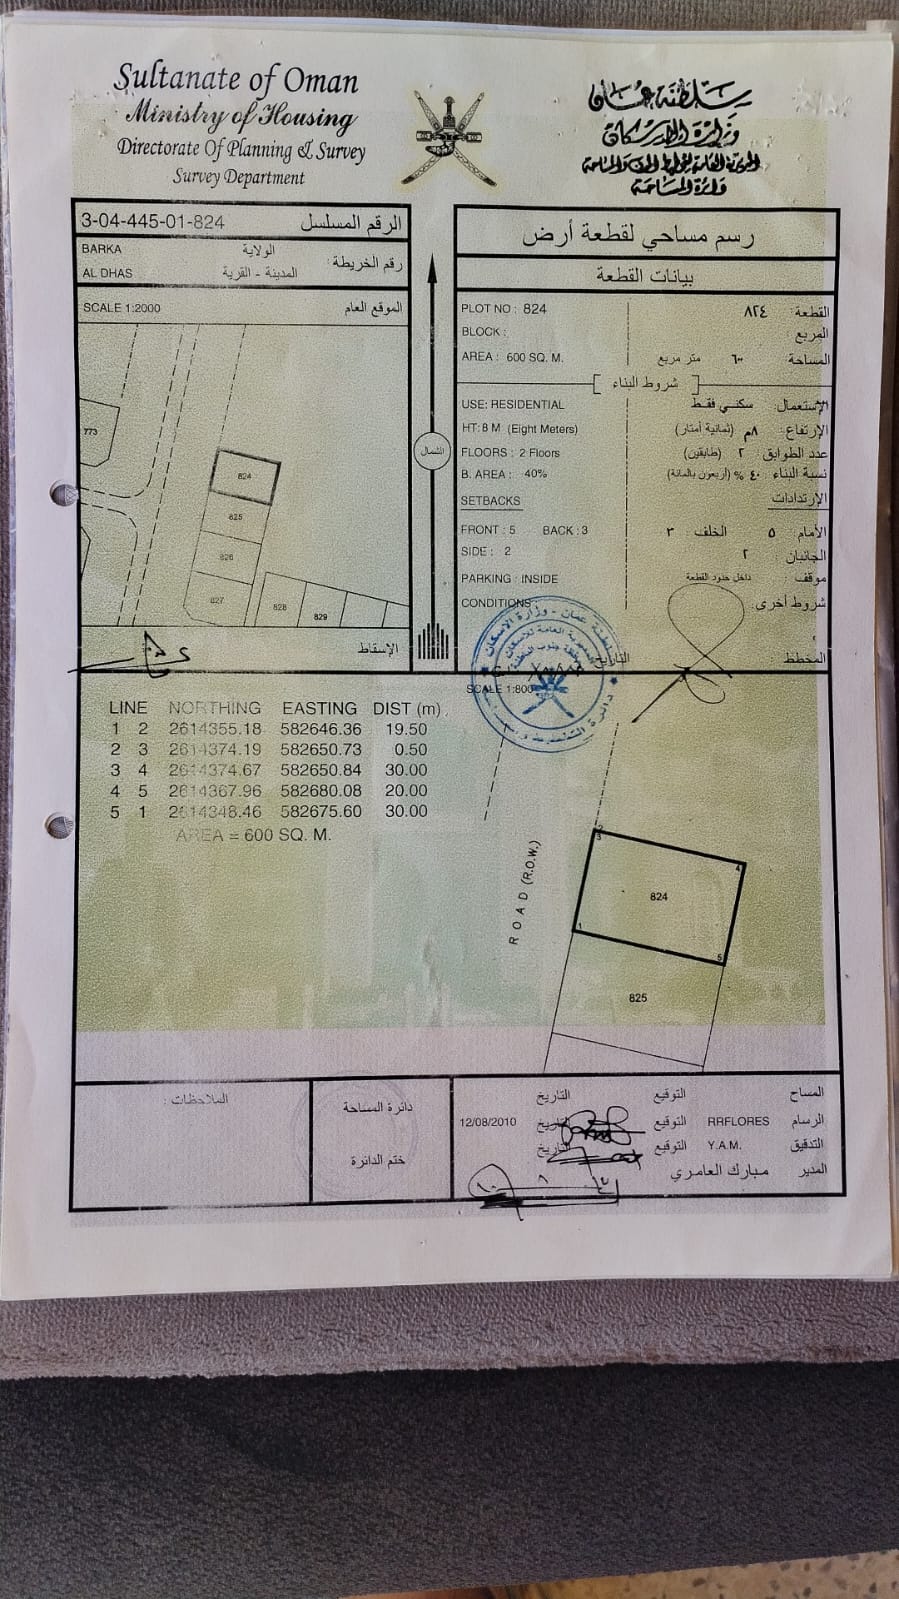 Sultanate of Oman
Ministry of Housing
Directorate Of Planning & Survey
Survey Department
سلطنة عمان
وزارة الإسكان
دائرة المساحة
3-04-445-01-824 الرقم المسلسل
BARKA الولاية
رقم الخريطة :
AL DHAS المدينة - القرية
SCALE 1:2000 الموقع العام
773
824
825
826
827
828
829
الإسقاط
الشمال
رسم مساحي لقطعة أرض
بيانات القطعة
PLOT NO : 824 القطعة: ٨٢٤
BLOCK : المربع:
AREA : 600 SQ. M. المساحة: ٦٠٠ متر مربع
شروط البناء
USE: RESIDENTIAL الإستعمال: سكني فقط
HT: 8 M (Eight Meters) الإرتفاع: ٨م (ثمانية أمتار)
FLOORS : 2 Floors عدد الطوابق ٢ (طابقين)
B. AREA : 40% نسبة البناء ٤٠ % (أربعون بالمائة)
SETBACKS الإرتدادات
FRONT : 5 BACK : 3 الأمام ٥ الخلف ٣
SIDE : 2 الجانبان ٢
PARKING : INSIDE موقف: داخل حدود القطعة
CONDITIONS : شروط أخرى:
المخطط التاريخ
SCALE 1:800
LINE NORTHING EASTING DIST (m)
1 2 2614355.18 582646.36 19.50
2 3 2614374.19 582650.73 0.50
3 4 2614374.67 582650.84 30.00
4 5 2614367.96 582680.08 20.00
5 1 2614348.46 582675.60 30.00
AREA = 600 SQ. M.
ROAD (R.O.W.)
2
3
4
824
1
5
825
الملاحظات :
دائرة المساحة
ختم الدائرة
المساح التوقيع التاريخ
الرسام RRFLORES التوقيع التاريخ 12/08/2010
التدقيق Y.A.M. التوقيع التاريخ
المدير مبارك العامري